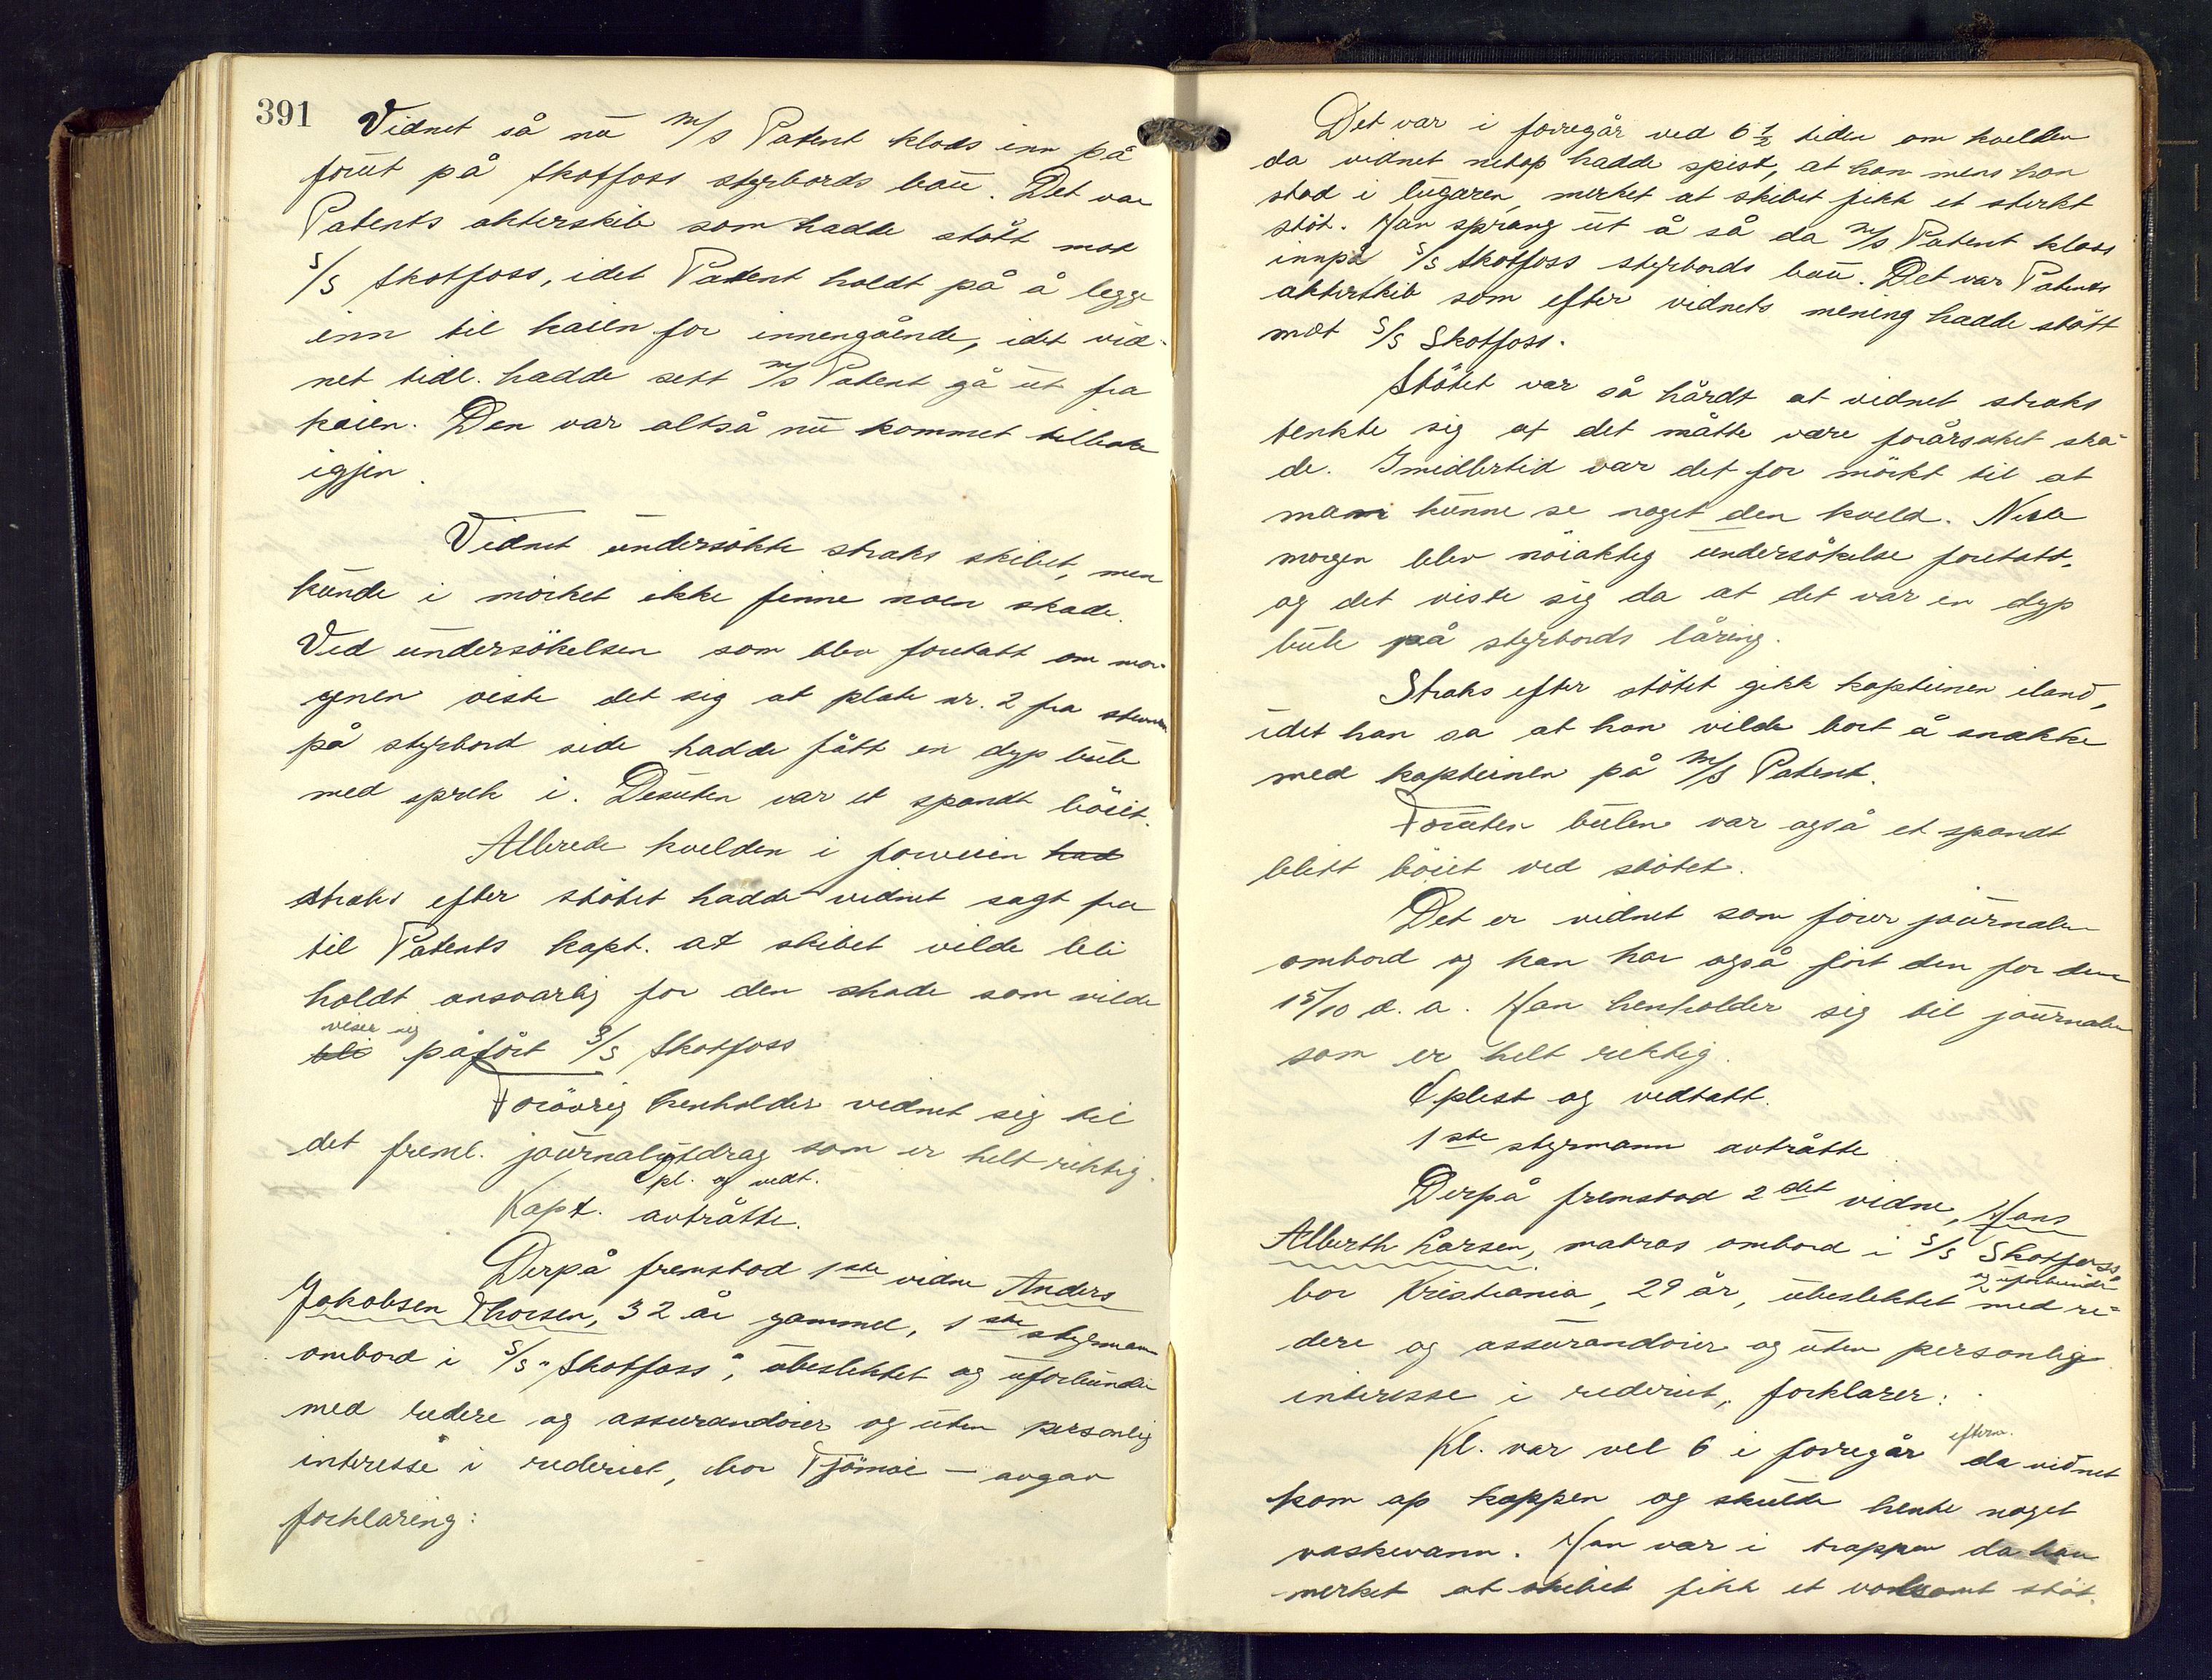 391
Vidnet så nu M/S Patent klods inn på
forut på Skotfoss styrbords bau. Det var
Patents akterskib som hadde støtt mot
S/S Skotfoss, idet Patent holdt på å legge
inn til kaien for innengående, idet vid-
net tidl. hadde sett M/S Patent gå ut fra
kaien. Den var altså nu kommet tilbake
igjen.
Vidnet undersøkte straks skibet, men
kunde i mørket ikke finne noen skade.
Ved undersøkelsen som blev foretatt om mor-
genen viste det sig at plate nr. 2 fra stevnen
på styrbord side hadde fått en dyp bule
med sprek i. Desuten var et spandt bøiet.
Allerede kvelden i forveien had
straks efter støtet hadde vidnet sagt fra
til Patents kapt. at skibet vilde bli
holdt ansvarlig for den skade som vilde
vise sig
bli påført S/S Skotfoss
Forøvrig henholder vidnet sig til
det freml. journalutdrag som er helt riktig.
Opl. og vedt.
Kapt. avtrådte.
Derpå fremstod 1ste vidne Anders
Jakobsen Thorsen, 32 år gammel, 1ste styrmann
ombord i S/S "Skotfoss", ubeslektet og uforbunden
med redere og assurandører og uten personlig
interesse i rederiet, bor Tjømøe - avgav
forklaring:
Det var i forregår ved 6 1/2 tiden om kvelden
da vidnet netop hadde spist, at han mens han
stod i lugaren, merket at skibet fikk et sterkt
støt. Han sprang ut å så da M/S Patent kloss
innpå S/S Skotfoss styrbords bau. Det var Patents
akterskib som efter vidnets mening hadde støtt
mot S/S Skotfoss.
Støtet var så hårdt at vidnet straks
tenkte sig at det måtte være forårsaket ska-
de. Imidlertid var det for mørkt til at
man kunne se noget den kveld. Neste
morgen blev nøiaktig undersøkelse foretatt,
og det viste sig da at det var en dyp
bule på styrbords låring.
Straks efter støtet gikk kapteinen iland,
idet han sa at han vilde bort å snakke
med kapteinen på M/S Patent.
Foruten bulen var også et spandt
blitt bøiet ved støtet.
Det er vidnet som fører journalen
ombord og han har også ført den for den
15/10 d. a. Han henholder sig til journalen
som er helt riktig.
Oplest og vedtatt.
1ste styrmann avtrådte
Derpå fremstod 2det vidne, Hans
Alberth Larsen, matros ombord i S/S Skotfoss,
og uforbunden
bor Kristiania, 29 år, ubeslektet med re-
dere og assurandører og uten personlig
interesse i rederiet, forklarer:
efterm.
Kl. var vel 6 i forregår da vidnet
kom op kappen og skulde hente noget
vaskevann. Han var i trappen da han
merket at skibet fikk et voldsomt støt.